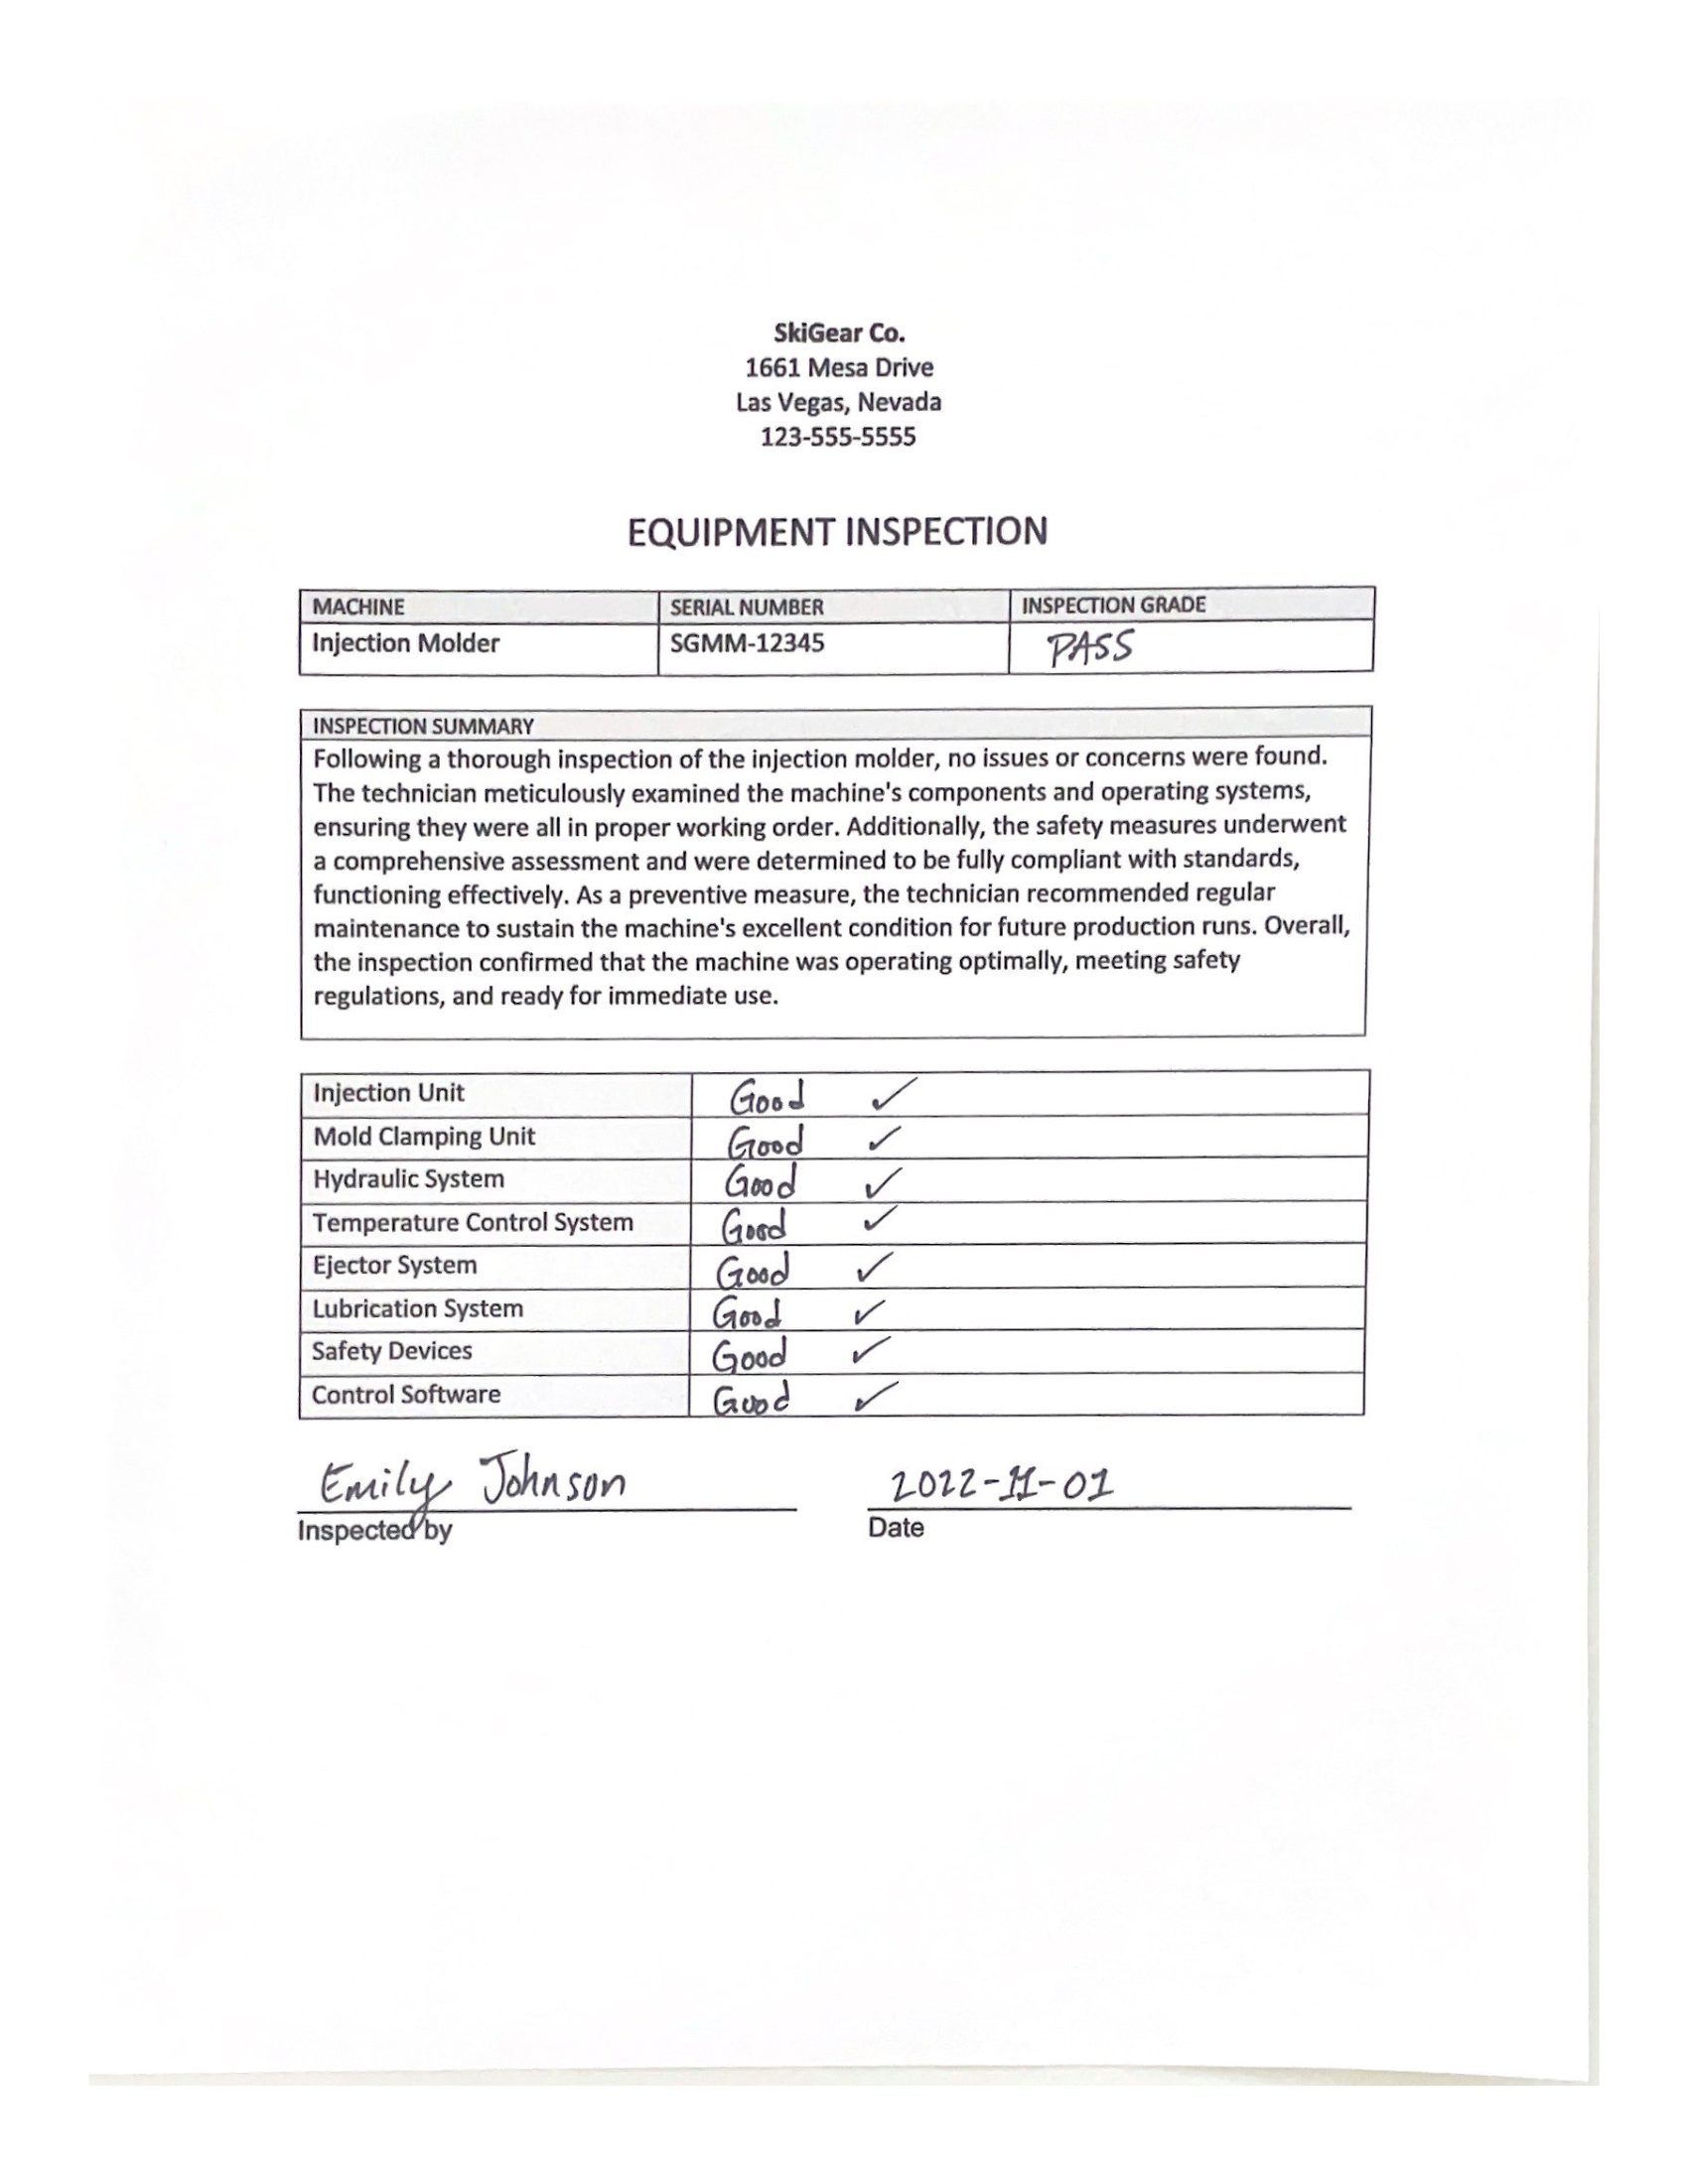 SkiGear Co.
1661 Mesa Drive
Las Vegas, Nevada
123-555-5555
EQUIPMENT INSPECTION
MACHINE SERIAL NUMBER INSPECTION GRADE
Injection Molder SGMM-12345 PASS
INSPECTION SUMMARY
Following a thorough inspection of the injection molder, no issues or concerns were found.
The technician meticulously examined the machine's components and operating systems,
ensuring they were all in proper working order. Additionally, the safety measures underwent
a comprehensive assessment and were determined to be fully compliant with standards,
functioning effectively. As a preventive measure, the technician recommended regular
maintenance to sustain the machine's excellent condition for future production runs. Overall,
the inspection confirmed that the machine was operating optimally, meeting safety
regulations, and ready for immediate use.
Injection Unit Good ✓
Mold Clamping Unit Good ✓
Hydraulic System Good ✓
Temperature Control System Good ✓
Ejector System Good ✓
Lubrication System Good ✓
Safety Devices Good ✓
Control Software Good ✓
Emily Johnson 2022-11-01
Inspected by Date